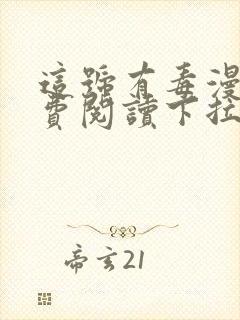 這號有毒漫
費閱讀下拉
帝玄21